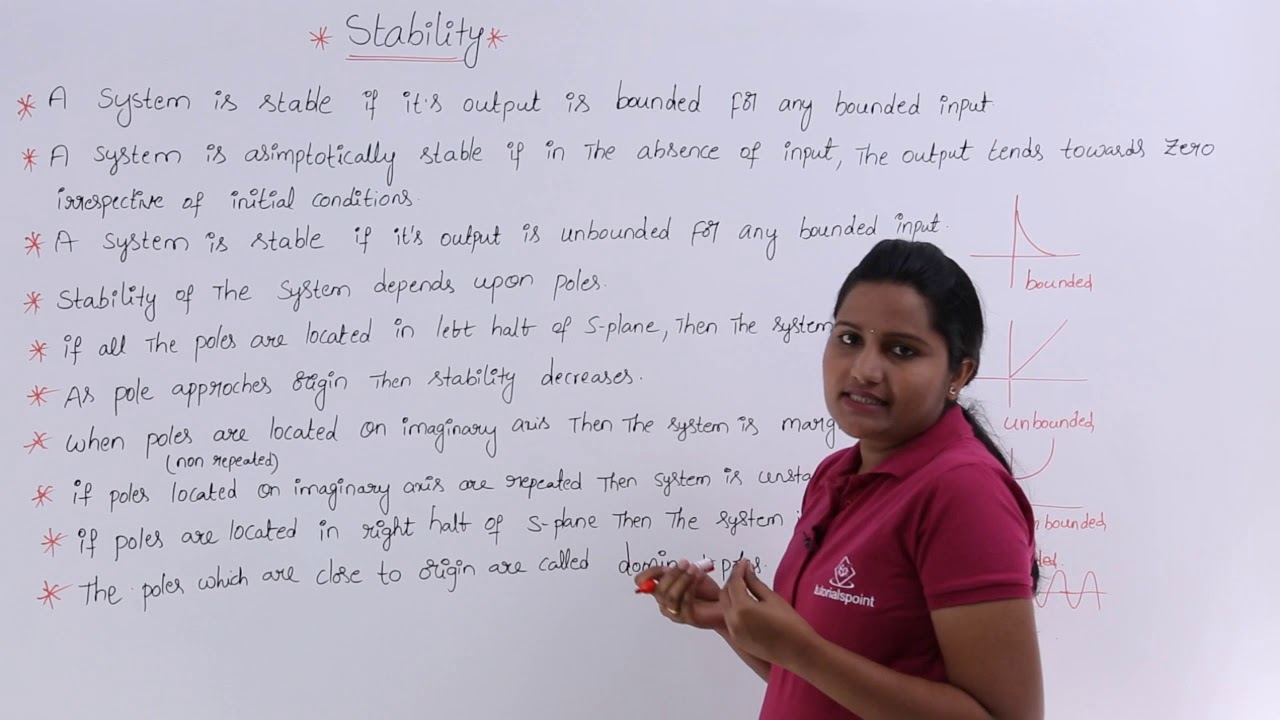 * Stability *
* A System is stable if it's output is bounded for any bounded input.
* A system is asimptotically stable if in The absence of input, The output tends towards Zero
irrespective of initial conditions.
* A System is stable if it's output is unbounded for any bounded input.
* Stability of The System depends upon poles.
* if all The poles are located in left half of S-plane, Then The system
* As pole approches origin Then stability decreases.
* when poles are located on imaginary axis Then The system is marg
(non repeated)
* if poles located on imaginary axis are repeated Then System is unsta
* if poles are located in right half of S-plane Then The system i
* The poles which are close to origin are called poles.
bounded
unbounded
bounded
tutorialspoint